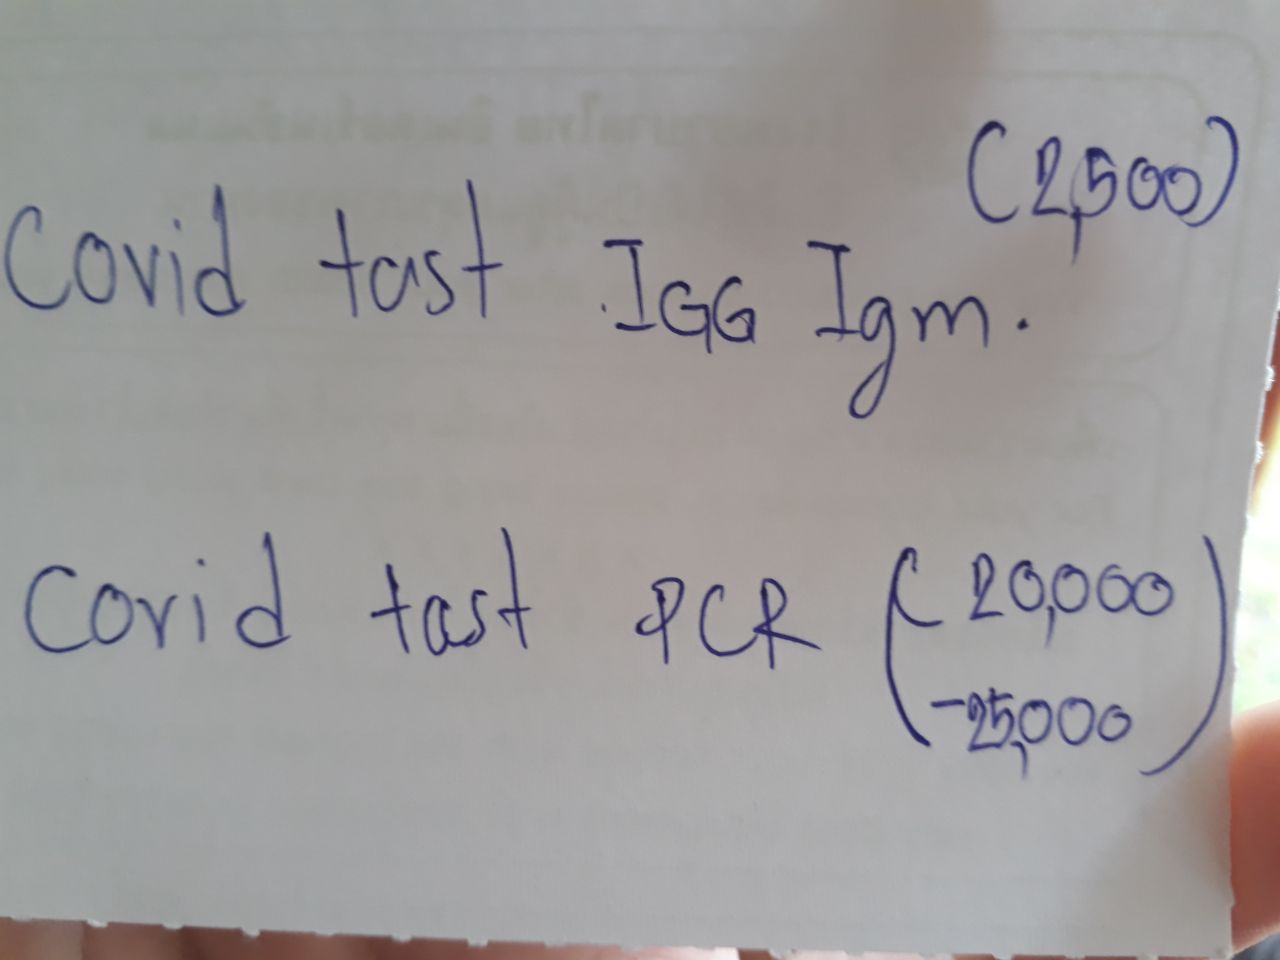 (2,500)
Covid tast IGG Igm.
Covid tast PCR (20,000
-25,000)